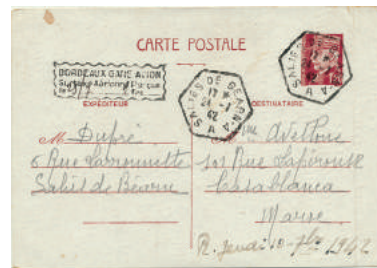 CARTE POSTALE
BORDEAUX GARE AVION
Surtaxe Aérienne Perçue
SALIES DE BEARN
17
24 - 1
42
A
SALIES
42
A
EXPÉDITEUR
DESTINATAIRE
M Dupré
6 Rue
Salies de Béarn
M
101 Rue Lapérouse
Casablanca
Maroc
R. jeudi 10 - 1942